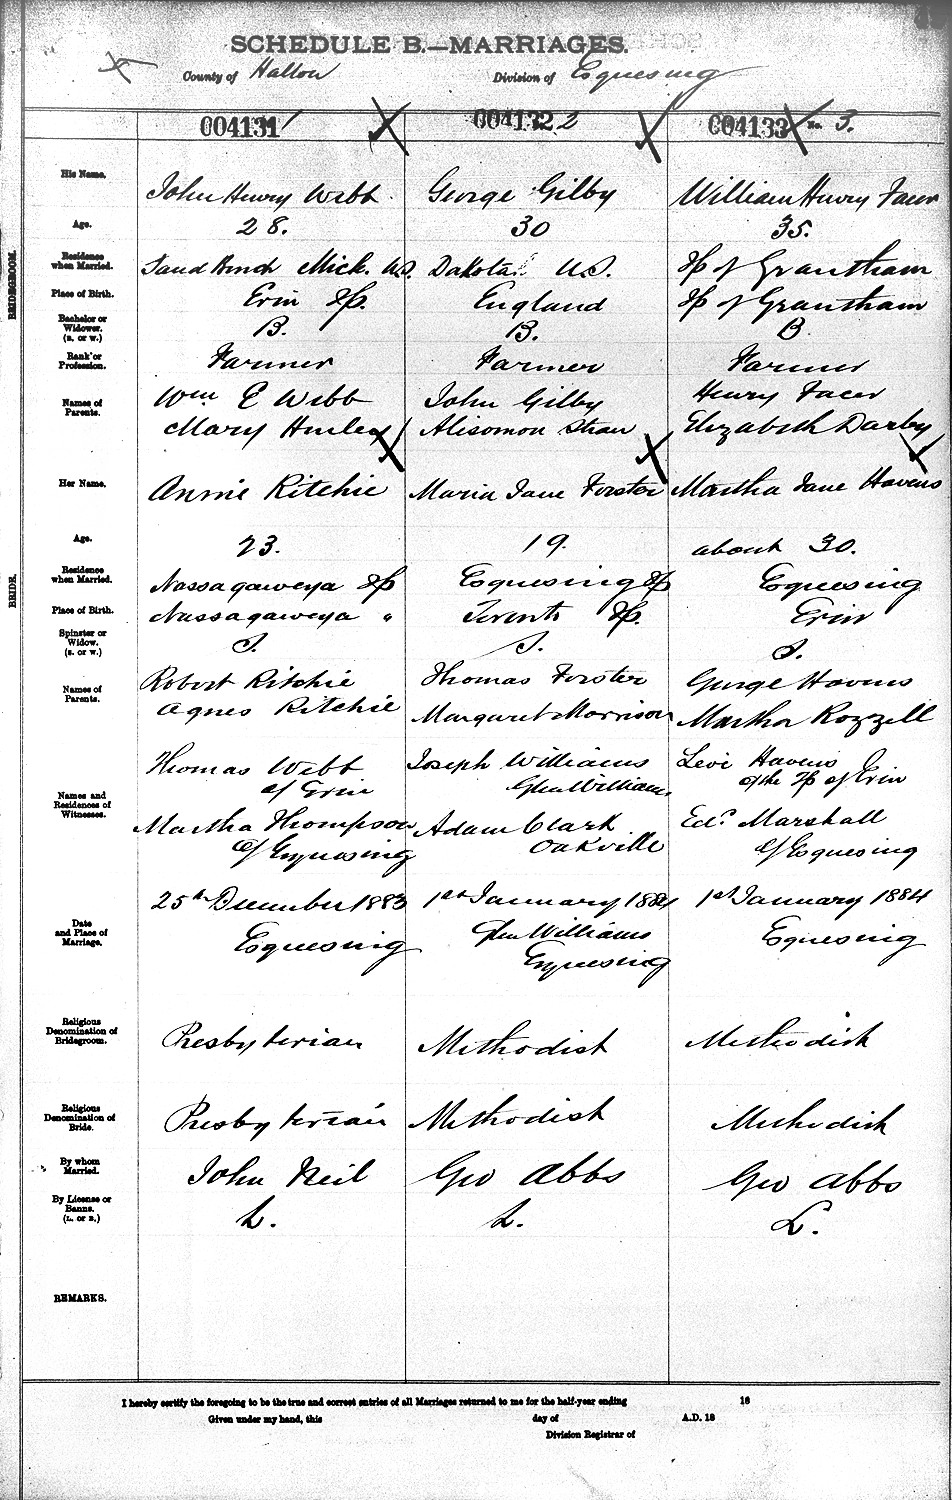 SCHEDULE B.—MARRIAGES.
County of Halton Division of Esquesing
004131 1 004132 2 004133 No. 3.
BRIDEGROOM.
His Name. John Henry Webb George Gilby William Henry Facer
Age. 28. 30 35.
Residence when Married. Sand Bench Mich. U.S. Dakota U.S. Tp of Grantham
Place of Birth. Erin Tp. England Tp of Grantham
Bachelor or Widower. (B. or W.) B. B. B
Rank or Profession. Farmer Farmer Farmer
Names of Parents. Wm E Webb John Gilby Henry Facer
Mary Hurley Straw Elizabeth Darby
BRIDE.
Her Name. Annie Ritchie Maria Jane Forster Martha Jane Havens
Age. 23. 19. about 30.
Residence when Married. Nassagaweya Tp Esquesing Tp Esquesing
Place of Birth. Nassagaweya " Toronto Tp. Erin
Spinster or Widow. (S. or W.) S. S. S.
Names of Parents. Robert Ritchie Thomas Forster George Havens
Agnes Ritchie Margaret Morrison Martha Rozzell
Names and Residences of Witnesses. Thomas Webb Joseph Williams Levi Havens
of Erin Glen Williams of the Tp of Erin
Martha Thompson Adam Clark Edd. Marshall
of Esquesing Oakville of Esquesing
Date and Place of Marriage. 25th December 1883 1st January 1884 1st January 1884
Esquesing Glen Williams Esquesing
Esquesing
Religious Denomination of Bridegroom. Presbyterian Methodist Methodist
Religious Denomination of Bride. Presbyterian Methodist Methodist
By whom Married. John Neil Geo Abbs Geo Abbs
By License or Banns. (L. or B.) L. L. L.
REMARKS.
I hereby certify the foregoing to be the true and correct entries of all Marriages returned to me for the half-year ending 18
Given under my hand, this day of A.D. 18
Division Registrar of